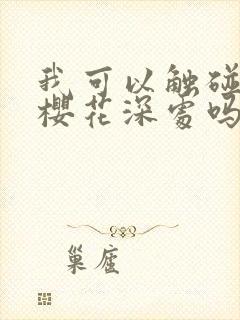 我可以触碰
樱花深处吗
巢庢